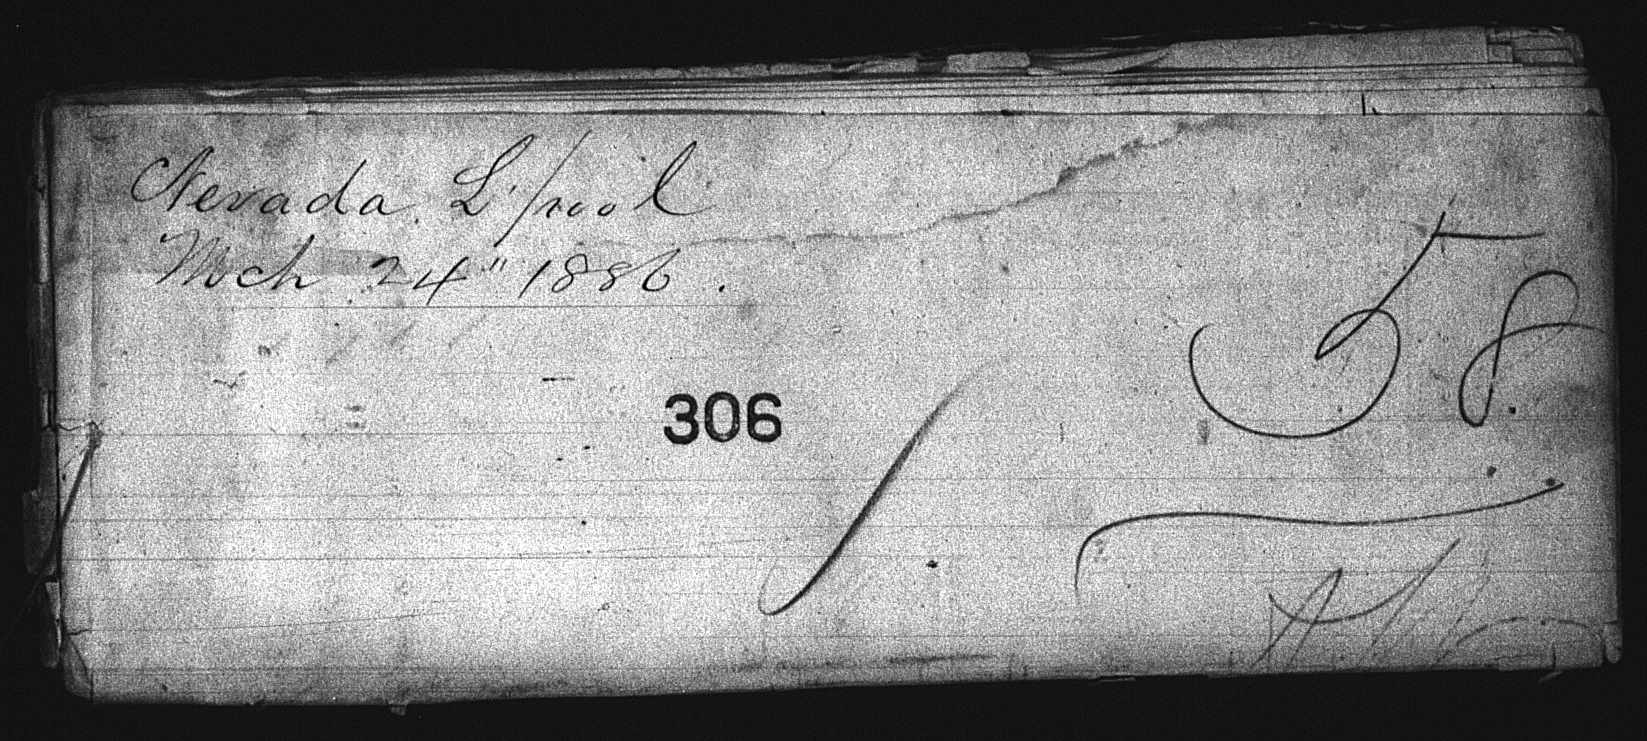 Nevada. L'pool
Mrch 24" 1886.
306
58